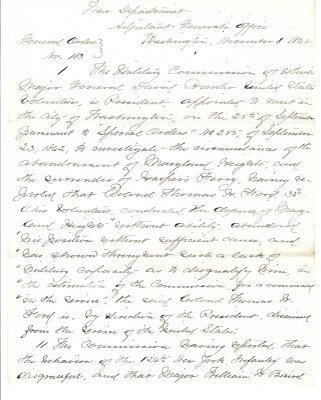 War Department
Adjutant General's Office
General Orders } Washington, November 8, 1862
No. 183
I The Military Commission of which
Major General David Hunter United States
Volunteers, is President, appointed to meet in
the City of Washington, on the 25th of September
pursuant to Special Orders No 255, of September
23, 1862, to investigate the circumstances of the
abandonment of Maryland Heights, and
the surrender of Harpers Ferry, having re-
ported that Colonel Thomas H. Ford 32d
Ohio Volunteers, conducted the defense of Mary-
land Heights "without ability, abandoned
"his position without sufficient cause, and
"has shown throughout such a lack of
"Military capacity as to disqualify him, in
"the estimation of the Commission for a command
"in the service", the said Colonel Thomas H.
Ford is, by direction of the President, dismissed
from the service of the United States.
II The Commission having reported that
the behavior of the 126th New York Infantry was
disgraceful, and that Major William H. Baird